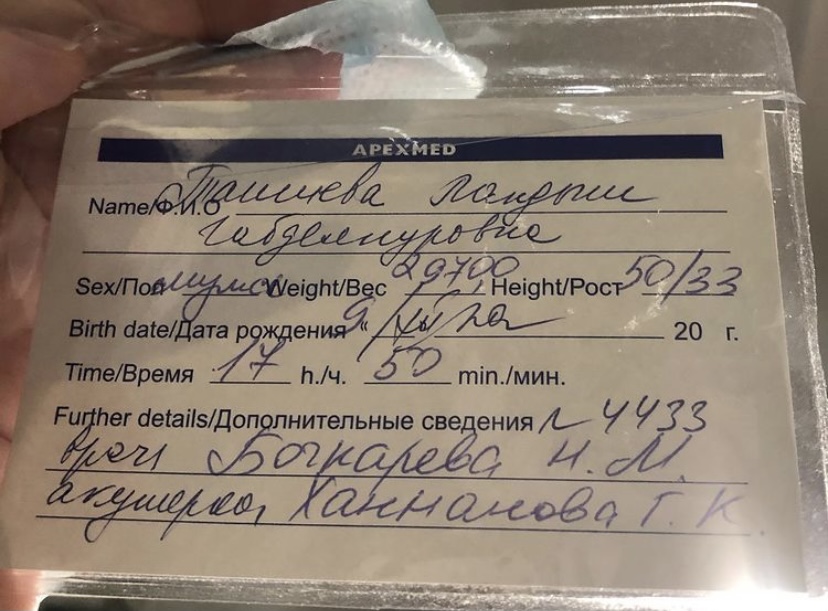 APEXMED
Name/Ф.И.О Ташиева Ландыш
Габделнуровна
Sex/Пол мужс Weight/Вес 29700 Height/Рост 50/33
Birth date/Дата рождения "9 20 г.
Time/Время 17 h./ч. 50 min./мин.
Further details/Дополнительные сведения 4433
врач Бочкарева Н. М.
акушерка Ханнанова Г. К.